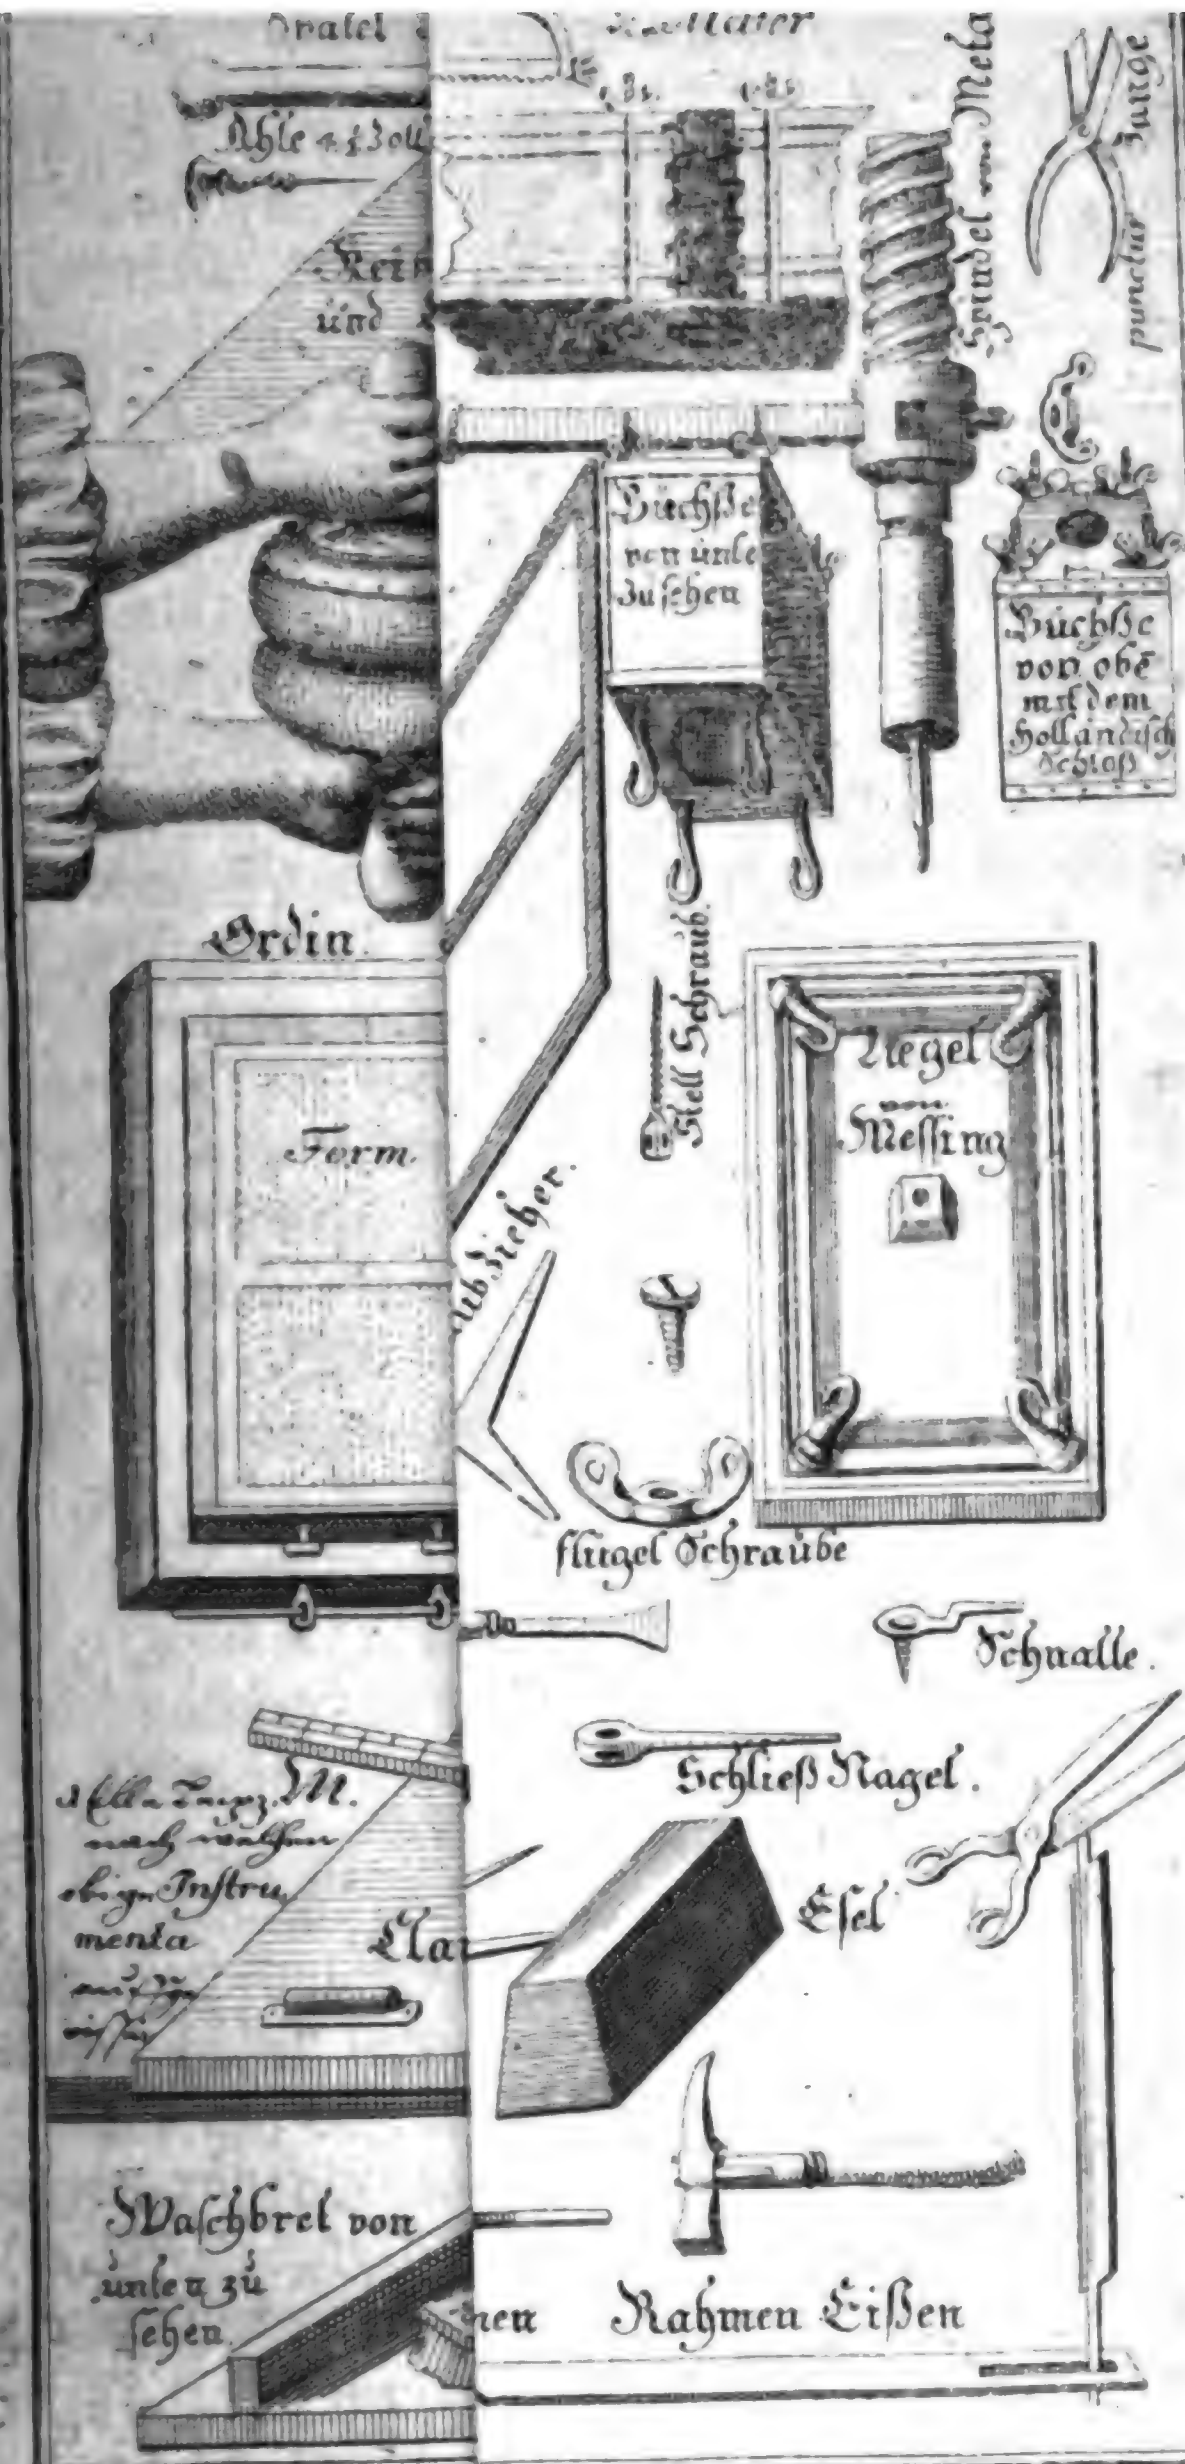 Ahle 4 ½ Zoll
und
Spindel von Meta
Zange
punctur
Büchsse
von unte
zusehen
Büchsse
von obē
mit dem
Holländisch
Schloß
Ordin.
Form
Stell Schraub.
Tiegel
von
Messing
ub Zieher.
flügel Schraübe
Schnalle.
Schließ Nagel.
M.
nach welchen
Instru
menta
Clav
Esel
Waschbret von
ünten zü
sehen
nen
Rahmen Eißen